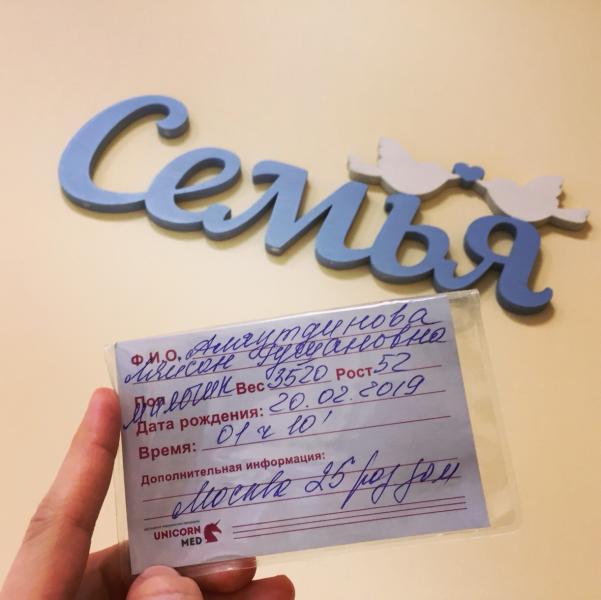 Семья
Ф.И.О. Аляутдинова
Ляйсан Гусмановна
Пол мальчик Вес 3520 Рост 52
Дата рождения: 20.02.2019
Время: 01 ч 10'
Дополнительная информация:
Москва 25 род дом
UNICORN
MED